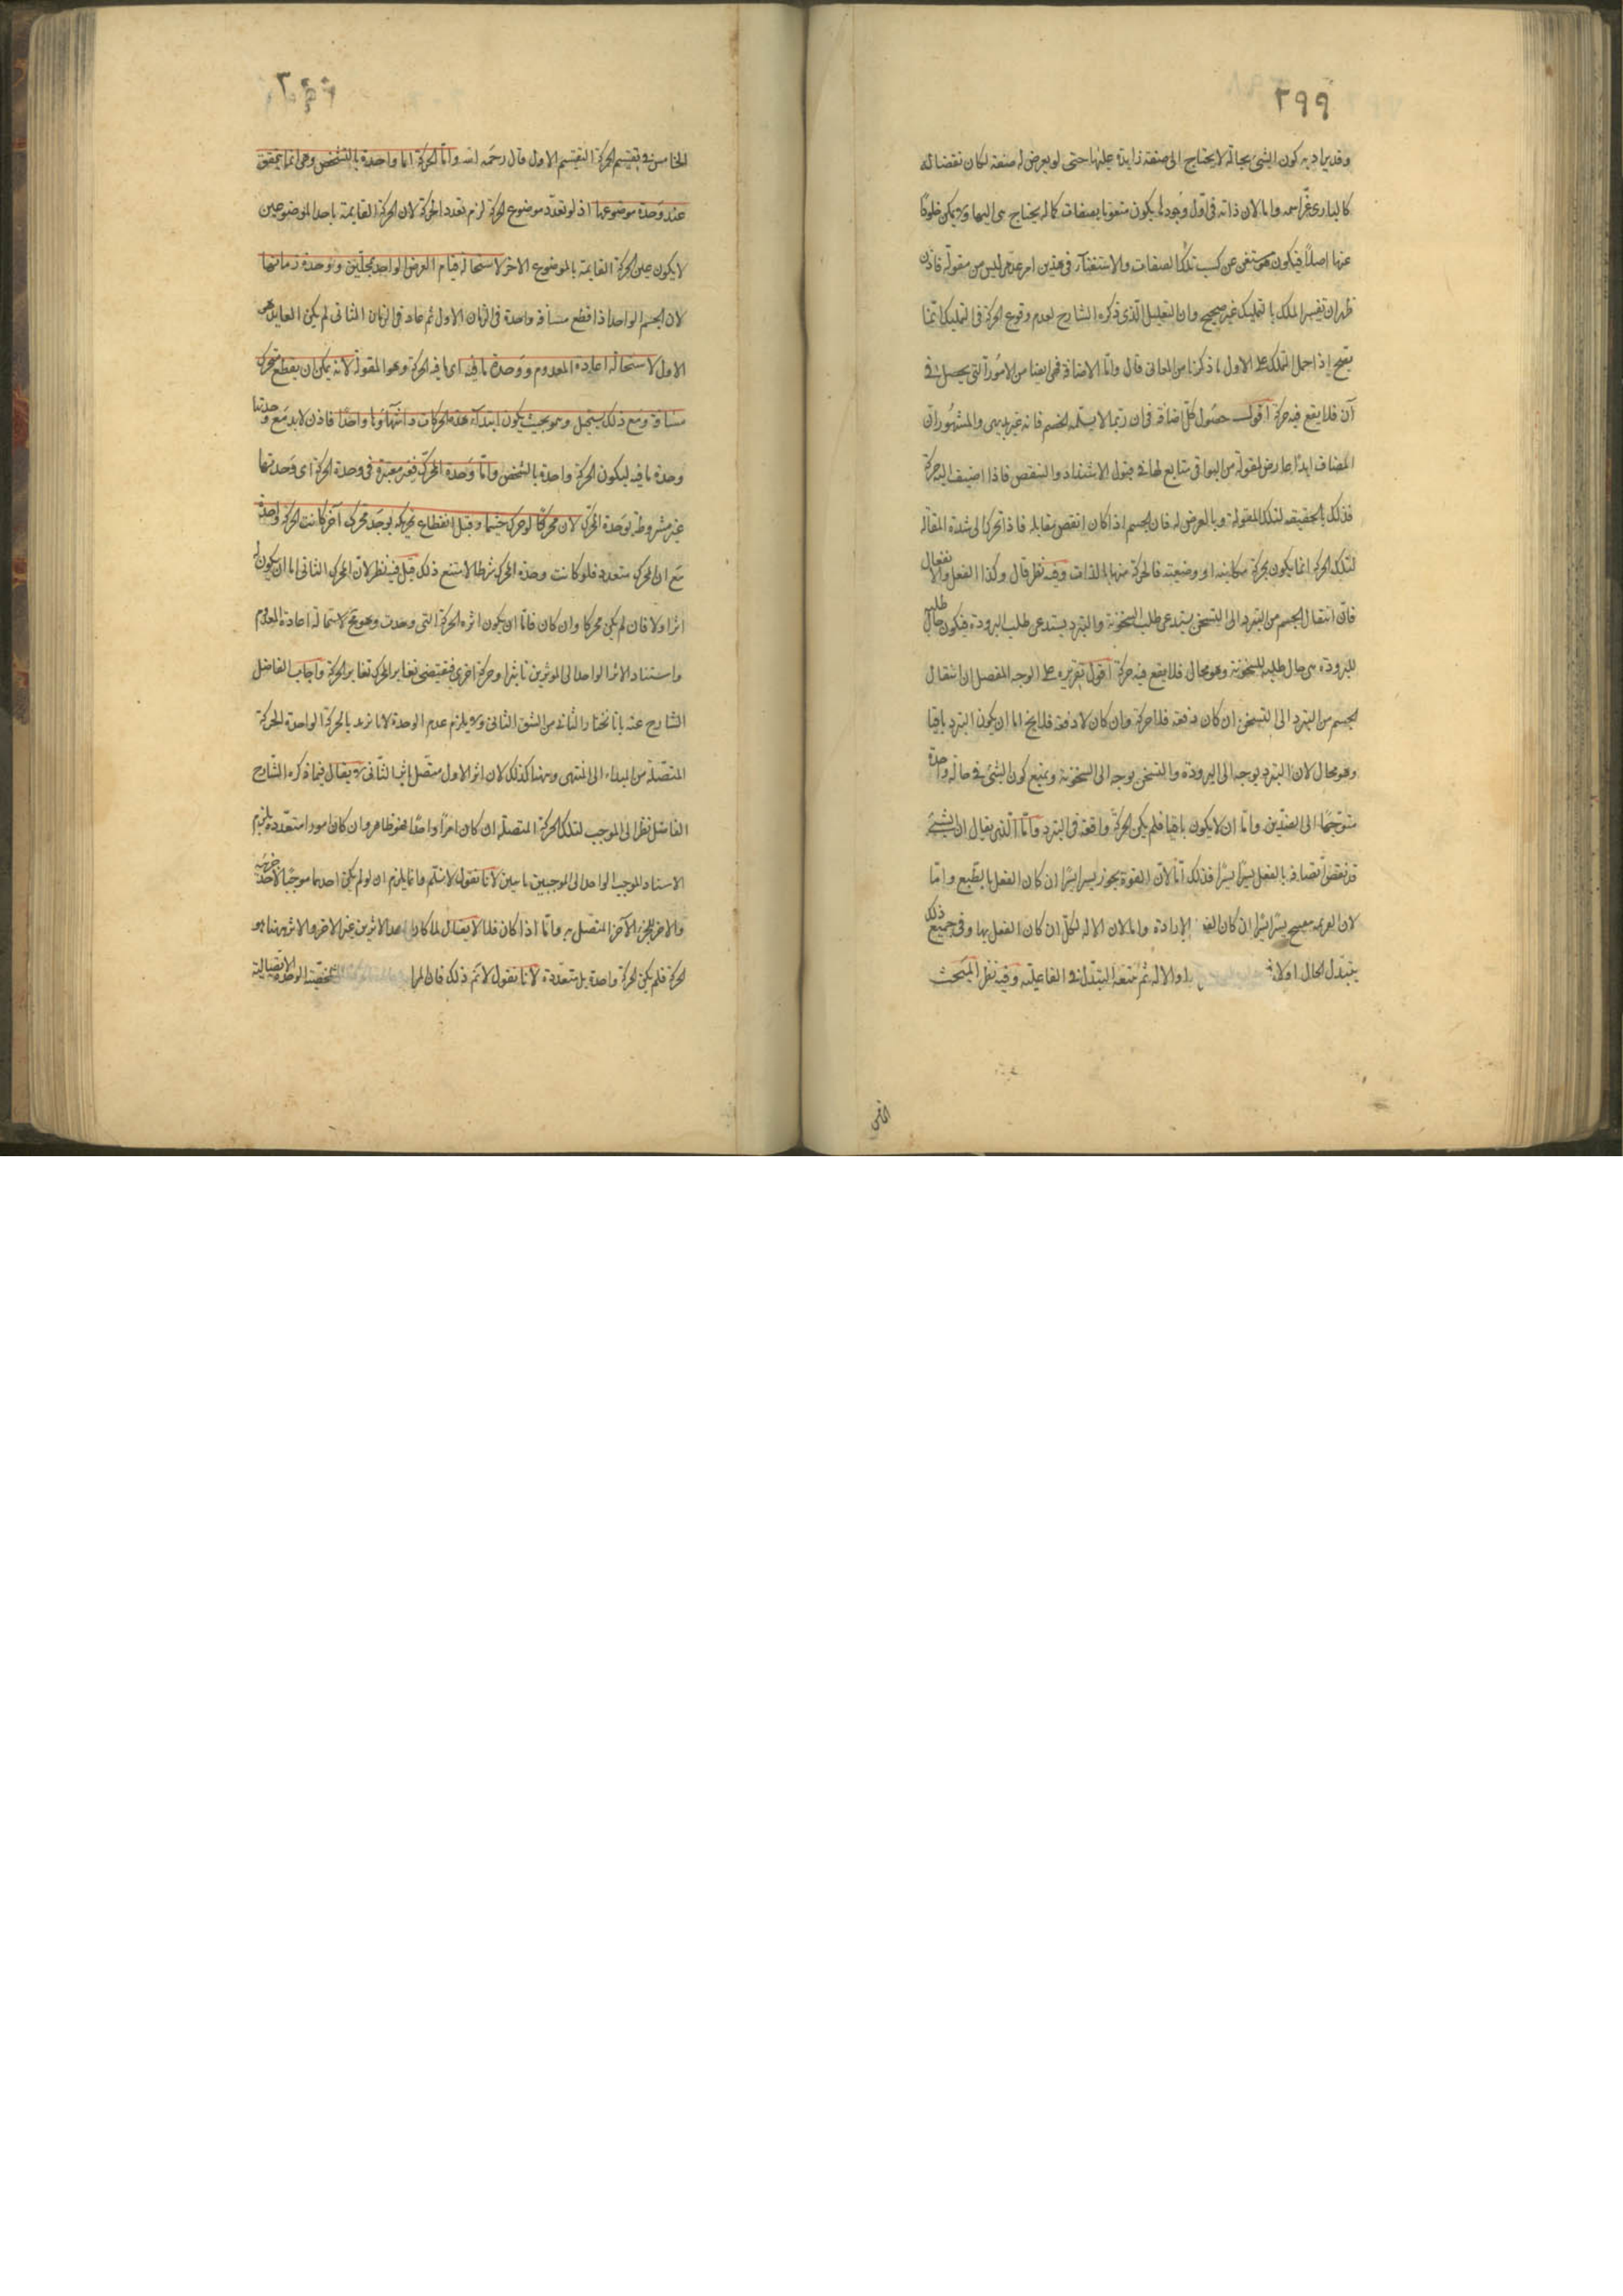 ٢٩٩
وقد يراد به كون الشئ بحالة لا يحتاج الى صفة زايدة عليها حتى لو يعرض له صفة لكان نقصا له
كالبارى عز اسمه واما لان ذاته فى اول وجوده يكون منعوتا بصفات كماله يحتاج هى اليها ولا يمكن خلوها
عنها اصلا فيكون مستغن عن كسب تلك الصفات والاستغناء فى هذين امر عدمى ليس من مقولة فاذن
ظهر ان تفسير الملك بالتمليك غير صحيح وان التعليل الذى ذكره الشارح لعدم وقوع الحركة فى التمليك انما
يصح اذا حمل الملك على الاول ما ذكرنا من المعانى قال واما الاضافة فهى ايضا من الامور التى يحصل فى
آن فلا يقع فيه حركة اقول حصول كل اضافة فى ان ربما لا يسلمه الخصم فانه غير بديهى والمشهور ان
المضاف ابدا عارض لمقولة من البواقى متابع لها فى قبول الاشتداد والتنقص فاذا اضيف اليه حركة
فذلك بالحقيقة لتلك المقولة وبالعرض له فان الجسم اذا كان انقص مقابلة فاذا تحرك الى شدة المقابلة
لتلك الحركة انما يكون بحركة مكانية او وضعية فالحركة منها بالذات وفيه نظر قال وكذا الفعل والانفعال
فان انتقال الجسم من التبرد الى التسخن يستدعى طلب السخونة والتبرد يستدعى طلب البرودة فيكون حال طلبه
للبرودة هى حال طلبه للسخونة وهو محال فلا يقع فيه حركة اقول تقريره على الوجه المفصل ان انتقال
الجسم من التبرد الى التسخن ان كان دفعة فلا حركة وان كان لا دفعة فلا يخ اما ان يكون التبرد باقيا
وهو محال لان التبرد توجه الى البرودة والتسخن توجه الى السخونة ويمتنع كون الشئ فى حالة واحدة
متوجها الى الضدين واما ان لا يكون باقيا فلم يكن الحركة واقعة فى التبرد واما الذى يقال ان الشئ
قد نقض اتصافه بالفعل يسيرا يسيرا فذلك اما لان القوة يجوز يسيرا يسيرا ان كان الفعل بالطبع واما
لان العزيمة يسيرا يسيرا ان كان الفعل بالارادة واما لان الالة لكل ان كان الفعل بها وفى جميع ذلك
يتبدل الحال اولا فى او الالة ثم يتبعه التبدل فى الفاعلية وفيه نظر المبحث
الخامس فى تقسيم الحركة التقسيم الاول قال رحمه الله واما الحركة اما واحدة بالشخص وهى انما يتحقق
عند وحدة موضوعها اذ لو تعدد موضوع الحركة لزم تعدد الحركة لان الحركة القايمة باحد الموضوعين
لا يكون عين الحركة القايمة بالموضوع الاخر لاستحالة قيام العرض الواحد بمحلين ووحدة زمانها
لان الجسم الواحد اذا قطع مسافة واحدة فى الزمان الاول ثم عاد فى الزمان الثانى لم يكن العايد هو
الاول لاستحالة اعادة المعدوم ووحدة ما فيه اى ما فيه الحركة وهو المقولة لانه يمكن ان يقطع متحرك
مسافة ومع ذلك يستحيل وهو بحيث يكون ابتداء هذه الحركات وانتهاؤها واحدا فاذن لابد مع وحدتها
وحدة ما فيه ليكون الحركة واحدة بالشخص واما وحدة المحرك فغير معتبرة فى وحدة الحركة اى وحدتها
غير مشروطة بوحدة المحرك لان محركا لو حرك جسما وقبل انقطاع تحريكه يوجد محرك آخر كانت الحركة واحدة
مع ان المحرك متعدد فلو كانت وحدة المحرك شرطا لامتنع ذلك قيل فيه نظر لان المحرك الثانى اما ان يكون له
اثر اولا فان لم يكن محركا وان كان فاما ان يكون اثره الحركة التى وجدت وهو مح لاستحالة اعادة المعدوم
واستناد الاثر الواحد الى المؤثرين تاثيرا وحركة اخرى فيقتضى تغاير المحرك تغاير الحركة واجاب الفاضل
الشارح عنه بانا نختار الثانى من الشق الثانى ولا يلزم عدم الوحدة لانا نريد بالحركة الواحدة الحركة
المتصلة من المبداء الى المنتهى وههنا كذلك لان اثر الاول متصل باثر الثانى لا يقال فيما ذكره الشارح
الفاضل نظر الى الموجب لتلك الحركة المتصلة ان كان امرا واحدا فهو ظاهر وان كان امورا متعددة يلزم
الاستناد الموجب الواحد الى الموجبين ما حين لانا نقول لا نسلم وانما يلزم ان لو لم يكن احدهما موجبا لاحد جزئيه
والاخر للجزء الآخر المتصل به واما اذا كان فلا لا يقال لما كان احد الاثرين غير الاخر والاثر ههنا هو
الحركة فلم يكن الحركة واحدة بل متعددة لانا نقول لا نم ذلك فان المراد الشخصية الوحدة الاتصالية